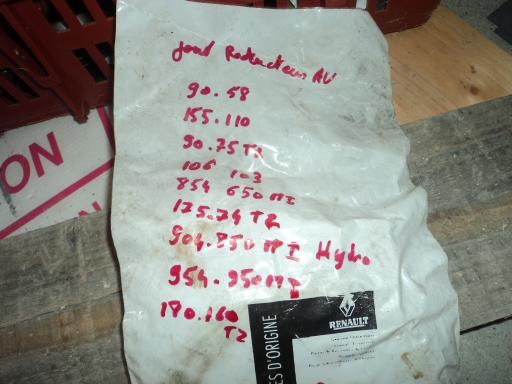 joint Reducteur AV
90.58
155.110
90.75 TZ
106 103
854 650 MI
125.74 TZ
904.850 MI Hydro
954.950 MI
180.160
TZ
ON
ES D'ORIGINE
RENAULT